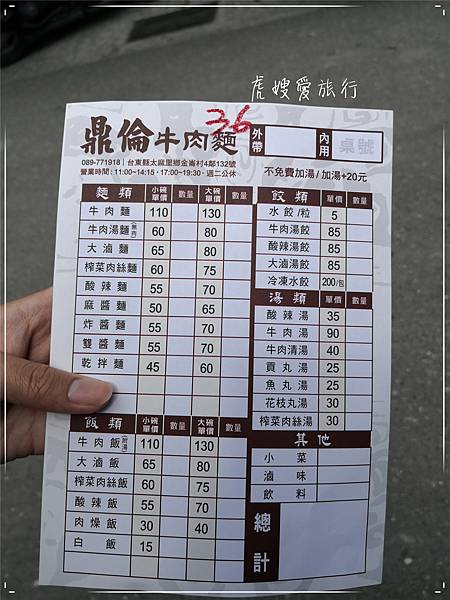 虎嫂愛旅行
36
鼎倫牛肉麵
外帶
內用 桌號
089-771918｜台東縣太麻里鄉金崙村4鄰132號
營業時間：11:00~14:15．17:00~19:30．週二公休
不免費加湯/加湯+20元
麵類 小碗單價 數量 大碗單價 數量
牛肉麵 110 130
牛肉湯麵 60 80
大滷麵 65 80
榨菜肉絲麵 60 75
酸辣麵 55 70
麻醬麵 50 65
炸醬麵 55 70
雙醬麵 55 70
乾拌麵 45 60
飯類 小碗單價 數量 大碗單價 數量
牛肉飯 110 130
大滷飯 65 80
榨菜肉絲飯 60 75
酸辣飯 55 70
肉燥飯 30 40
白飯 15
餃類 單價 數量
水餃/粒 5
牛肉湯餃 85
酸辣湯餃 85
大滷湯餃 85
冷凍水餃 200/包
湯類 單價 數量
酸辣湯 35
牛肉湯 90
牛肉清湯 40
貢丸湯 25
魚丸湯 25
花枝丸湯 30
榨菜肉絲湯 30
其他
小菜
滷味
飲料
總計